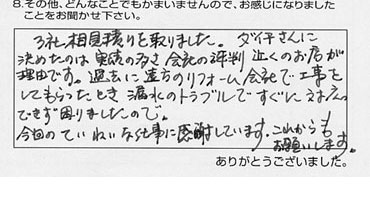 8.その他、どんなことでもかまいませんので、お感じになりました
ことをお聞かせ下さい。
3社相見積りを取りました。ダイチさんに
決めたのは実績の多さ 会社の評判 近くのお店が
理由です。過去に遠方のリフォーム会社で工事を
してもらったとき 漏水のトラブルですぐに対応
できず困りましたので。
今回のていねいな仕事に感謝しています。これからも
お願いします。
ありがとうございました。